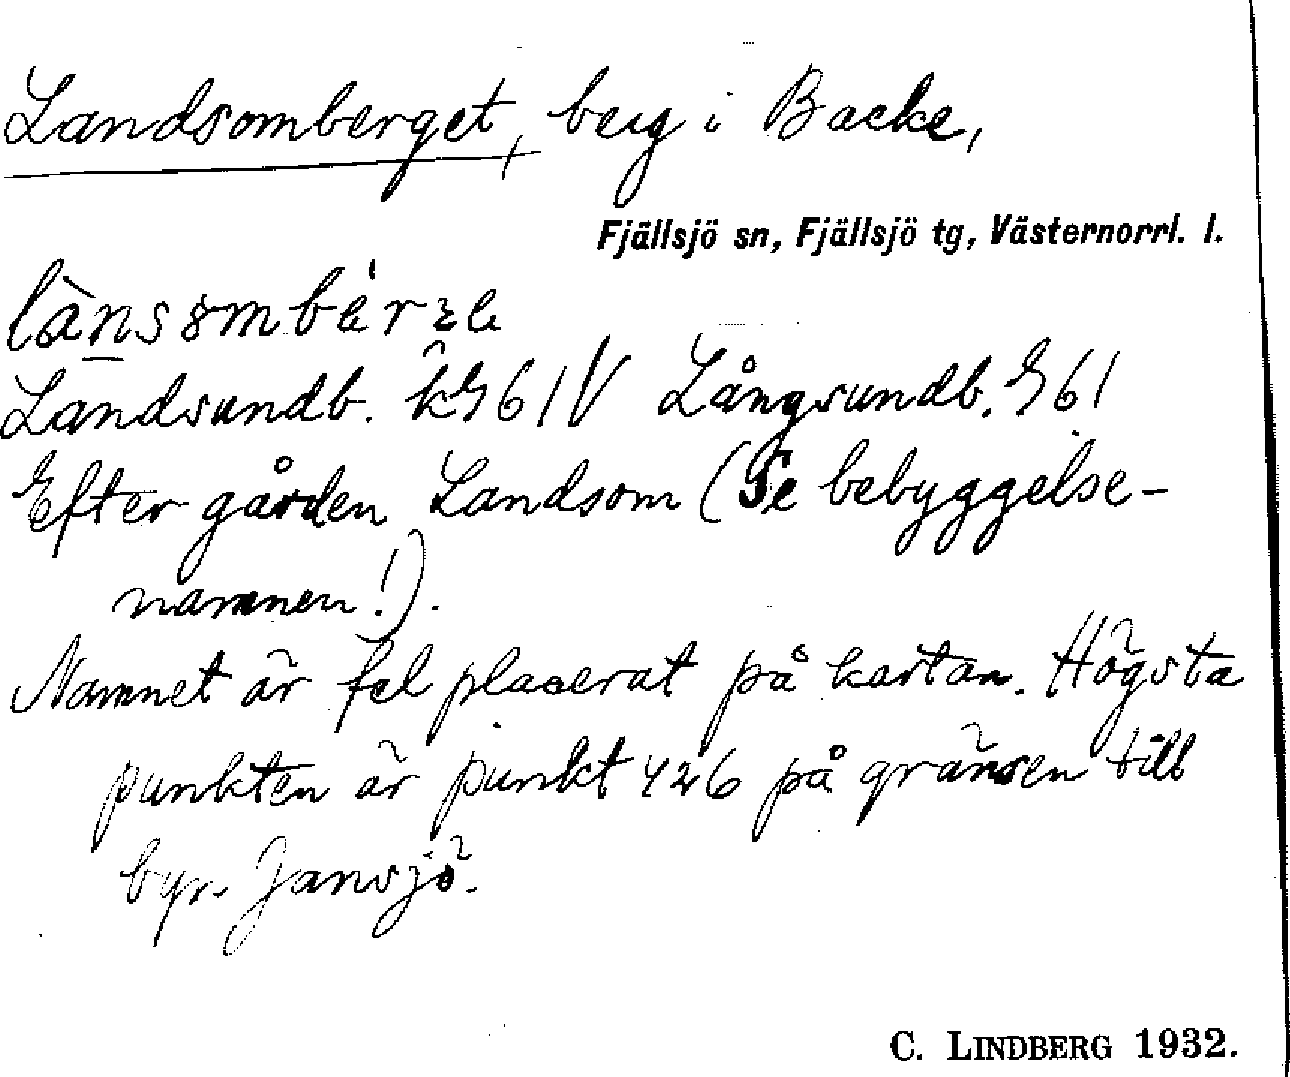 Landsomberget, berg i Backe,
Fjällsjö sn, Fjällsjö tg, Västernorrl. l.
Landsundb. k 61 V Långsundb. 61
Efter gården Landsom (Se bebyggelse-
namnen!).
Namnet är fel placerat på kartan. Högsta
punkten är punkt 426 på gränsen till
byn Jansjö.
C. LINDBERG 1932.